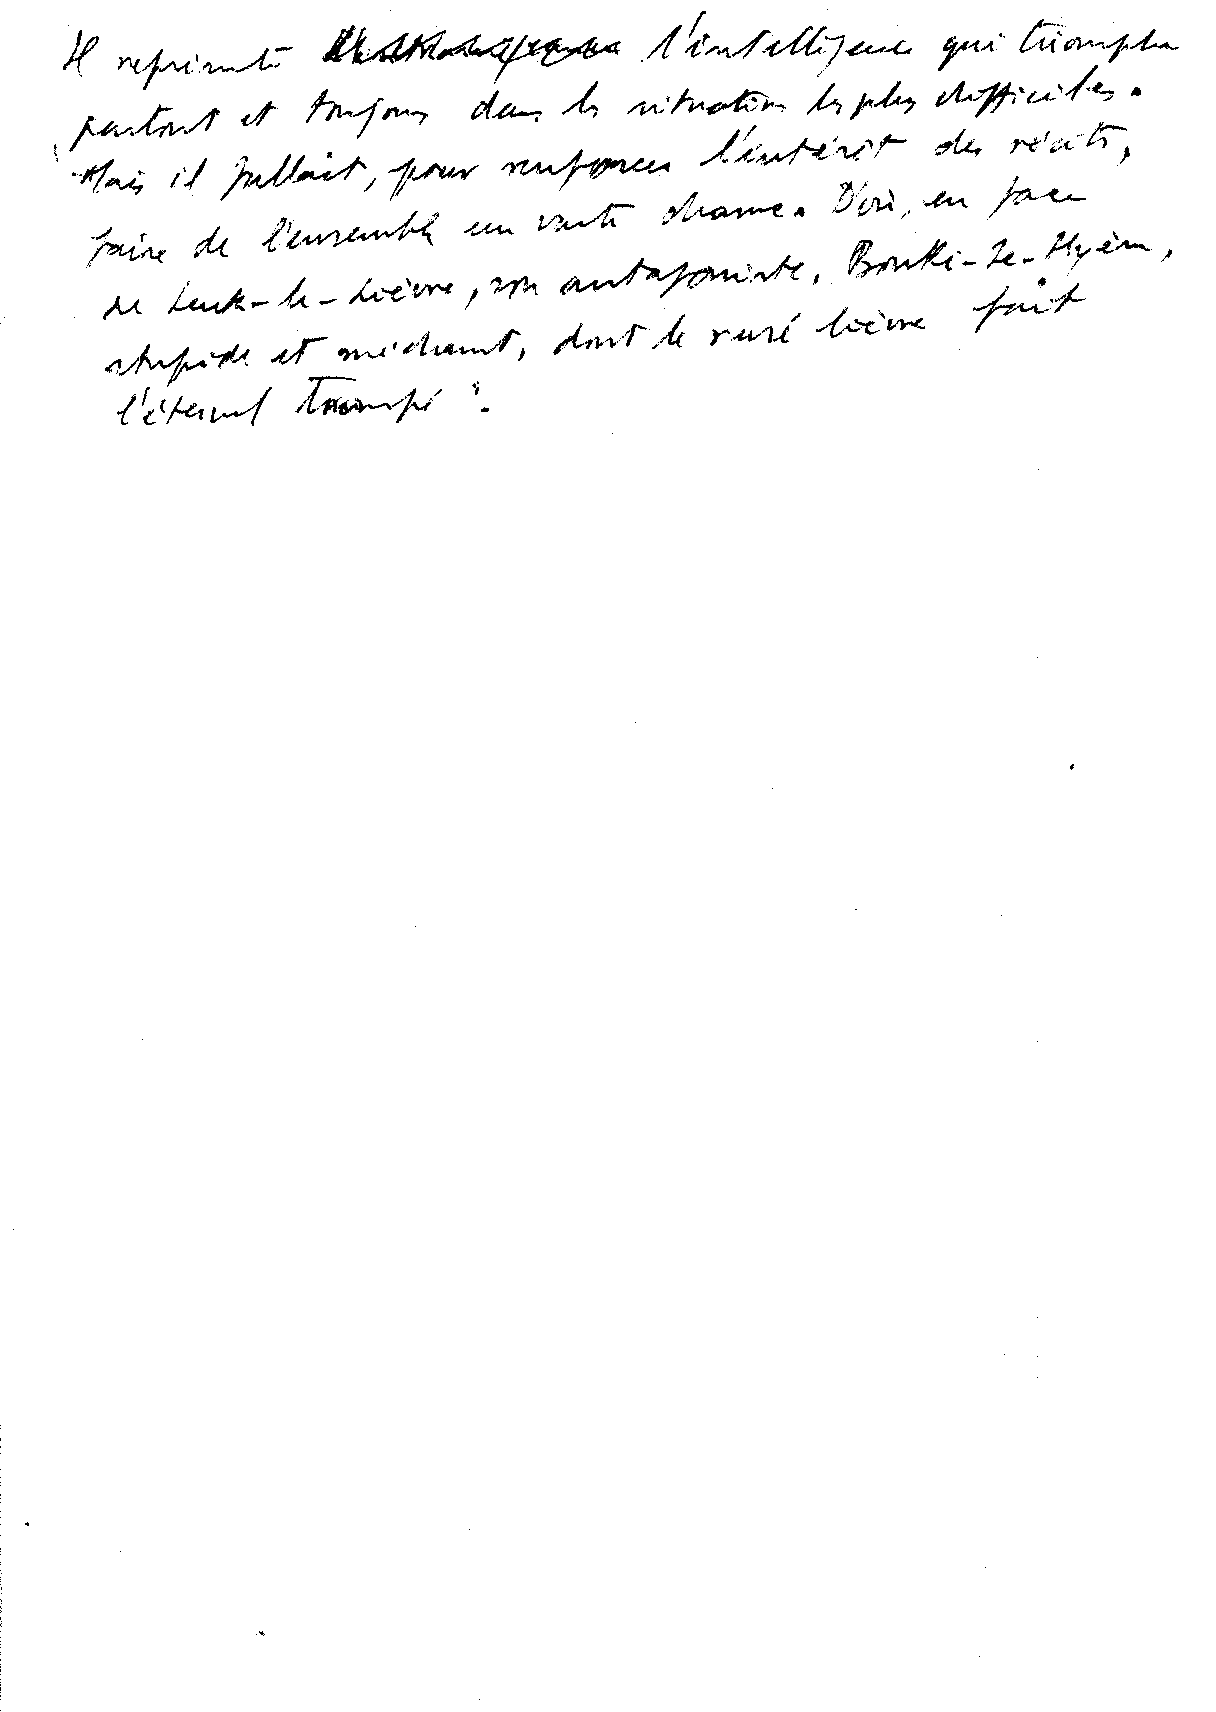 Il représente l'intelligence qui triomphe
partout et toujours dans les situations les plus difficiles.
Mais il fallait, pour renforcer l'intérêt des récits,
faire de l'ensemble un vaste drame. D'où, en face
de Leuk-le-Lièvre, son antagoniste, Bouki-le-Hyène,
stupide et méchant, dont le rusé lièvre fait
l'éternel trompé".